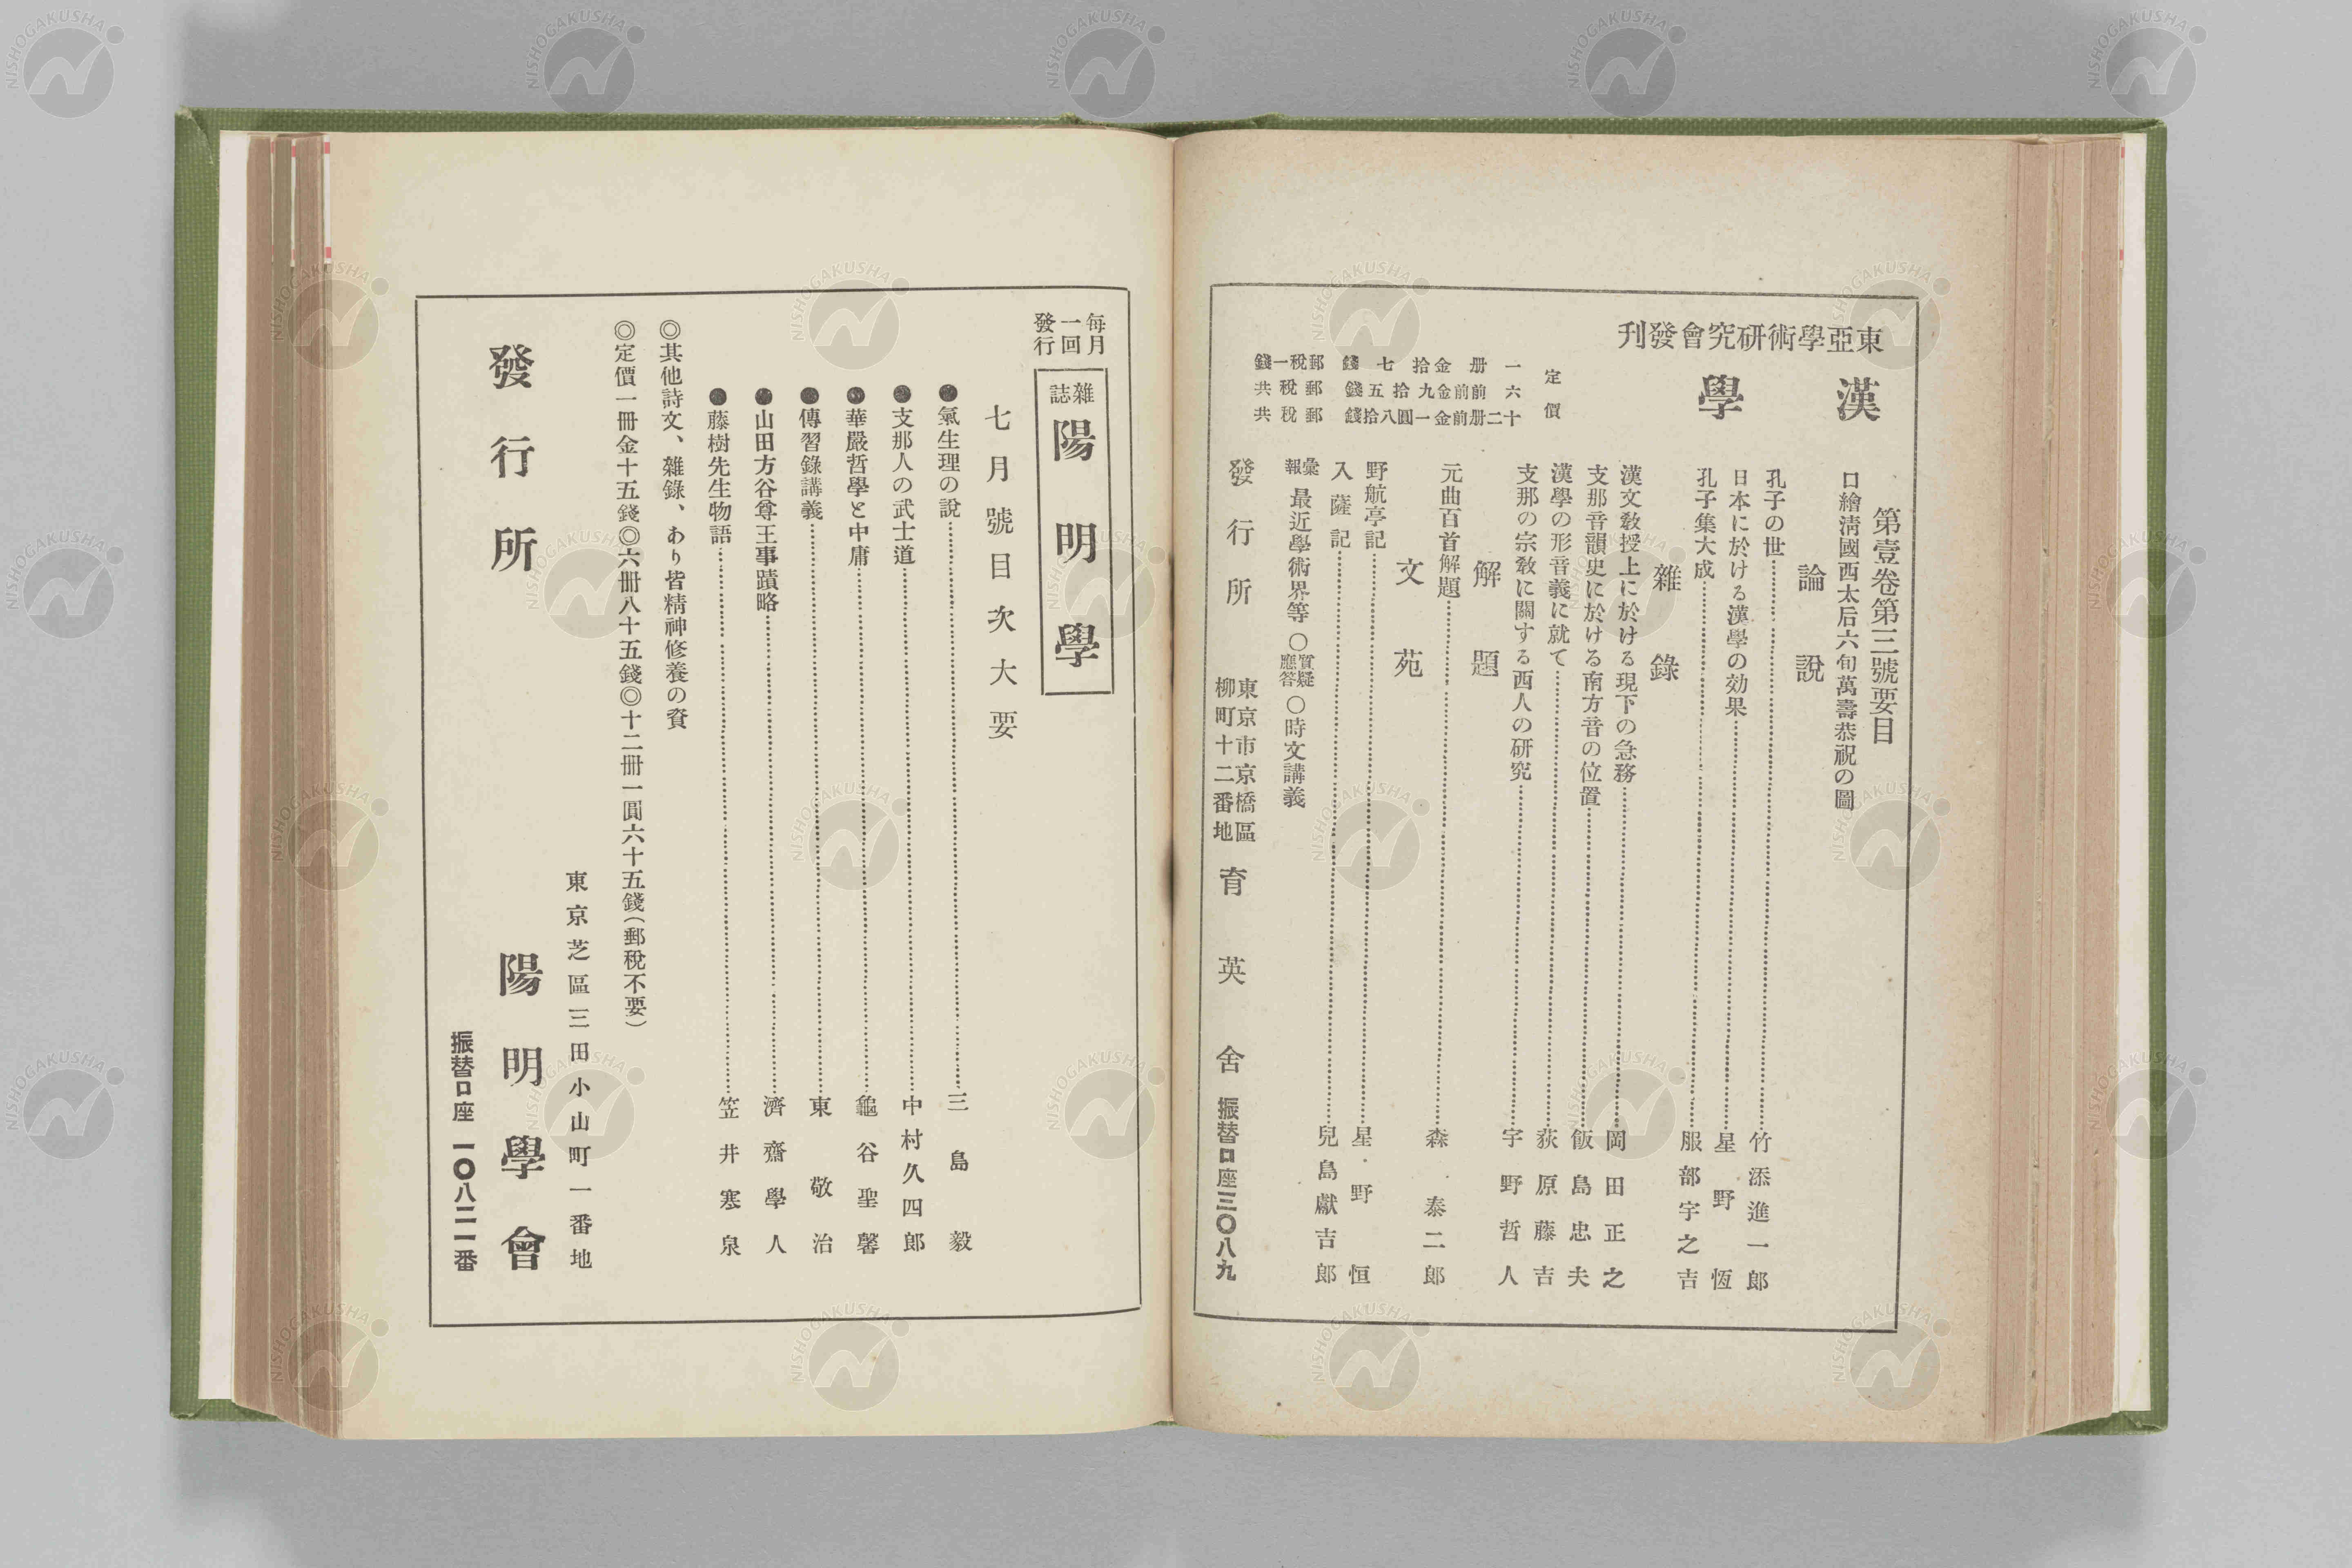 東亞學術研究會發刊
漢學
定價
一册金拾七錢郵税一錢
六前前金九拾五錢郵税共
十二册前金一圓八拾錢郵税共
第壹卷第三號要目
口繪清國西太后六旬萬壽恭祝の圖
論說
孔子の世……竹添進一郎
日本に於ける漢學の効果……星野恆
孔子集大成……服部宇之吉
雜錄
漢文敎授上に於ける現下の急務……岡田正之
支那音韻史に於ける南方音の位置……飯島忠夫
漢學の形音義に就て……荻原藤吉
支那の宗敎に關する西人の研究……宇野哲人
解題
元曲百首解題……森泰二郎
文苑
野航亭記……星野恒
入薩記……兒島獻吉郎
彙報 最近學術界等 〇質疑應答 〇時文講義
發行所 東京市京橋區柳町十二番地 育英舍 振替口座三〇八九
每月一回發行
雜誌 陽明學
七月號目次大要
●氣生理の說……三島毅
●支那人の武士道……中村久四郎
●華嚴哲學と中庸……龜谷聖馨
●傳習錄講義……東敬治
●山田方谷尊王事蹟略……濟齋學人
●藤樹先生物語……笠井寒泉
◎其他詩文、雜錄、あり皆精神修養の資
◎定價一冊金十五錢◎六冊八十五錢◎十二冊一圓六十五錢(郵稅不要)
東京芝區三田小山町一番地
發行所 陽明學會
振替口座 一〇八二一番
NISHOGAKUSHA